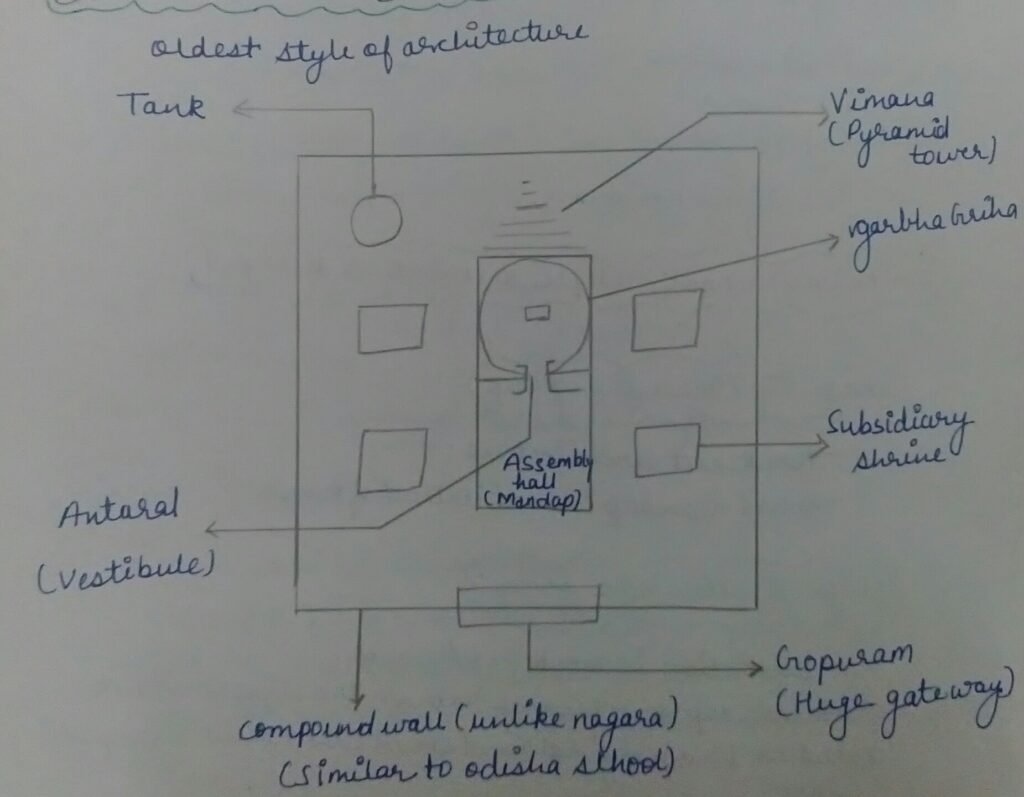 Oldest style of architecture
Tank
Vimana
(Pyramid
tower)
garbha Griha
Subsidiary
shrine
Assembly
hall
(Mandap)
Antaral
(Vestibule)
Gopuram
(Huge gateway)
compound wall (unlike nagara)
(similar to odisha school)